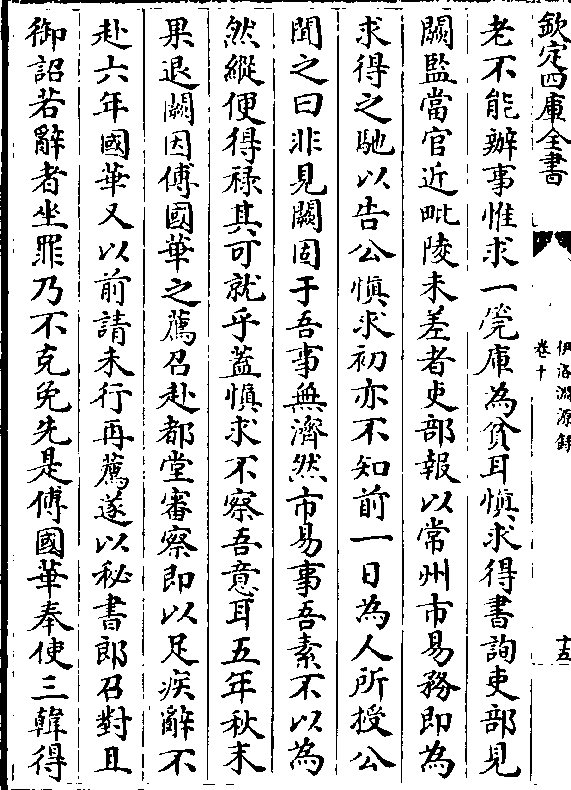 欽定四庫全書
伊洛淵源録
卷十
十五
老不能辦事惟求一筦庫為貧耳慎求得書詢吏部見
闕監當官近毗陵未差者吏部報以常州市易務即為
求得之馳以告公慎求初亦不知前一日為人所授公
聞之曰非見闕固于吾事無濟然市易事吾素不以為
然縱便得禄其可就乎蓋慎求不察吾意耳五年秋末
果退闕因傅國華之薦召赴都堂審察即以足疾辭不
赴六年國華又以前請未行再薦遂以秘書郎召對且
御詔若辭者坐罪乃不克免先是傅國華奉使三韓得